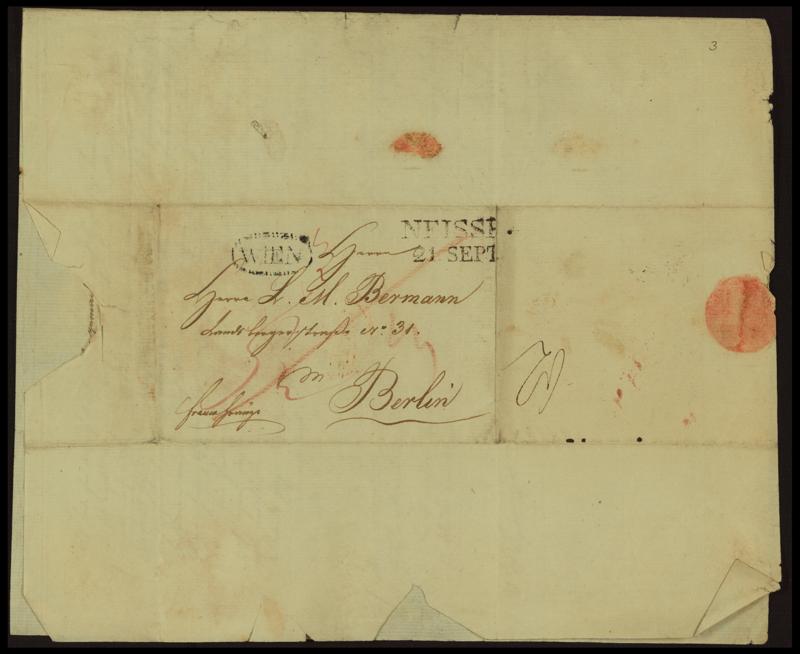 3
NEISSE
WIEN
21 SEPT
Herrn
Herrn L. M. Bermann
Landsbergerstraße No 31.
in
Berlin